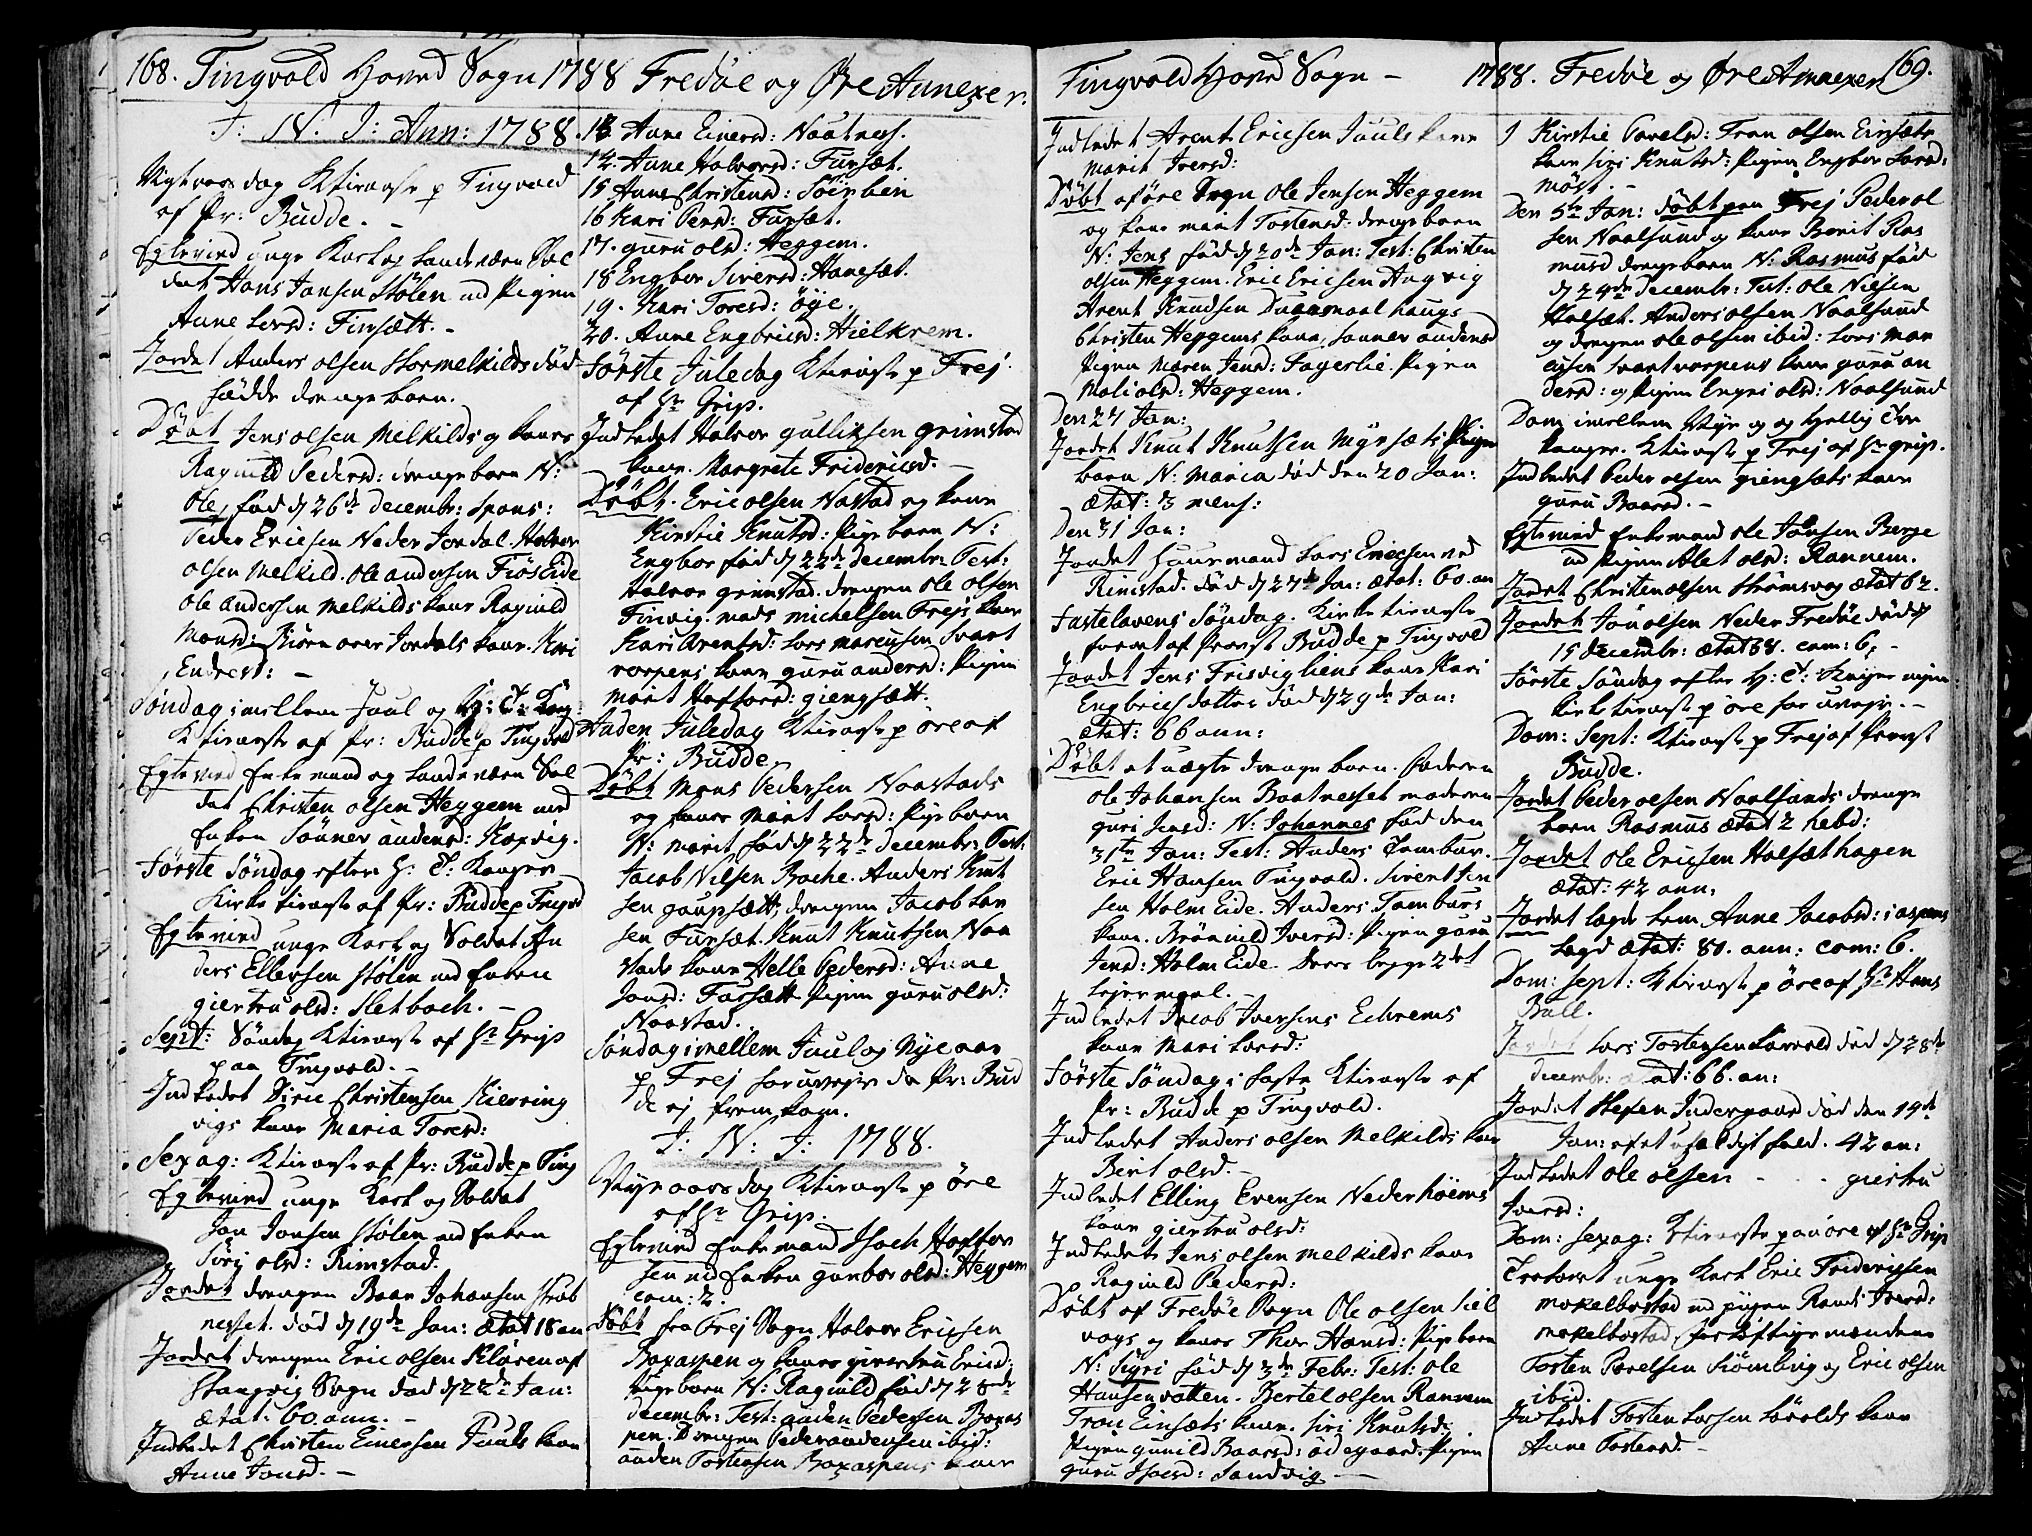 168. Tingvold Hoved Sogn 1788 Fredøe og Øre Annexer.
I: N. I: Ann: 1788.
Nytaarsdag Ktieneste p Tingvold
af Pr: Budde. –
Egtevied unge Karl og Landeværn Sol
dat Hans Jonsen Stölen med Pigen
Anne Larsd: Finsætt. –
Jordet Anders olsen Stormelkilds död
fødde drengebarn.
Döbt Jens olsen Melkilds og kones
Ragnild Pedersd: drengebarn N:
Ole, fød d 26de decembr: Spons:
Peder Ericsen Neder Jordal. Halvor
olsen Melkild. ole andersen Fiöseide
ole andersen Melkilds kone Ragnild
Monsd: Biörn over Jordals kone. Kari
Endresd: –
Söndag imellem Juul og H: 3: Kong:
Ktieneste af Pr: Budde p Tingvold
Egtevied Enkemand og Landeværn Sol
dat Christen olsen Heggem med
Enken Sönnev andersd: Korsvig.
Første Söndag efter H: 3: Konger
Kirketieneste af Pr: Budde p Tingvold
Egtevied unge Karl og Soldat An
ders Ellevsen Stölen med Enken
giertru olsd: Sletbach. –
Sept: Söndag Ktieneste af Hr Grip
paa Tingvold. –
Indledet Diric Christensen Kierring
vigs kone Maria Toresd:
Sexag: Ktieneste af Pr: Budde p Ting
Egtevied unge Karl og Soldat
Jon Jonsen Stölen med Enken
Siri olsd: Rimstad.
Jordet drengen Baar Johansen Strøb
nesset. död d 19de Jan: Ætat 18 an
Jordet drengen Eric olsen Kløven af
Stangvig Sogn död d 22de Jan:
ætat: 60. ann. –
Indledet Christen Einersen Juuls kone
Anne Jonsd. –
13 Anne Einersd: Naatnes.
14. Anne Halvorsd: Fursæt.
15 Anne Christensd: Söinbein
16 Kari Persd: Fursæt.
17. guru olsd: Heggem.
18 Engbor Siversd: Hanesæt.
19. Kari Toresd: öye.
20. Anne Engbricsd: Hielkrem.
Første Juledag Ktieneste p Frej
af Hr Grip.
Indledet Halvor gullicsen grimstad
kone Margrete Fridericsd. –
Döbt. Eric olsen Nastad og kone
Kirstie Knutsd: Pigebarn N:
Engbor fød d 22de decembr: Test:
Halvor grimstad. drengen ole olsen
Finvig. mads michelsen Frejs kone
Kari arentsd: Lars marensen Svart
vorpens kone guru andersd: Pigen
marit Haftorsd: giengsætt.
Anden Juledag Ktieneste p öre af
Pr: Budde
Döbt Mons Pedersen Naastads
og kones Marit Larsd: Pigebarn
N: marit fød d 22de decembr: Test:
Jacob Nilsen Bache. Anders Knut
sen gaupsætt, drengen Jacob Lar
sen Fursæt. Knut Knutsen Naa
stads kone Helle Pedersd: Anne
Jonsd: Fursætt Pigen guru olsd:
Naastad.
Söndag imellem Juul og Nye aar
p Frej for uvejr da Pr: Bud
de ej frem kom.
I: N: I: 1788.
Nyeaarsdag Ktieneste p öre
af Hr Grip.
Egtevied Enkemand Isach Haftor
sen med Enken gunbor olsd: Heggem
com: 2.
Döbt fra Frej Sogn Halvor Ericsen
Boxaspen og kones giertru Ericsd:
Pigebarn N: Ragnild fød d 28de
decembr: Test: anden Pedersen Boxas
pen. Drengen Peder andensen ibid:
anden Tostensen Boxaspens kone
Tingvold Hoved Sogn – 1788. Fredøe og Øre Annexer 169.
Indledet Arent Ericsen Juuls kone
Marit Iversd:
Döbt af öre Sogn Ole Jensen Heggem
og kone marit Tostensd: drengebarn
N: Jens fød d 20de Jan: Test: Christen
olsen Heggem. Eric Ericsen Angvig
Arent Knudsen Duusmaalhaugs
Christen Heggems kone, Sönnev andersd
Pigen Maren Jensd: Fagerlie. Pigen
Mali olsd: Heggem.
Den 27 Jan:
Jordet Knut Knutsen Myrsæts Pige
barn N: Maria död den 20 Jan:
Ætat: 3 mens:
Den 31 Jan:
Jordet Huusmand Lars Ericsen ved
Rimstad. död d 27de Jan: ætat: 60. an
Fastelavens Söndag. Kirketieneste
forrettet af Provst Budde p Tingvold
Jordet Jens Frisvigliens kone Kari
Engbricsdatter död d 29de Jan:
ætat: 66 ann:
Döbt et uægte drengebarn. Faderen
ole Johansen Baatnesset moderen
guri Jensd: N: Johannes fød den
31te Jan: Test: Anders Tambur.
Eric Hansen Tingvold. Sivent Jen
sen Holm Eide. Anders Tamburs
kone. Brönnild Iversd: Pigen guru
Jensd: Holm Eide. Deres begge 2det
lejermaal. –
Indledet Jacob Iversens Echrems
kone Mari Larsd:
Første Söndag i Faste Ktieneste af
Pr: Budde p Tingvold.
Indledet Anders olsen Melkilds kone
Berit olsd. –
Indledet Elling Evensen Nederhöiems
kone giertru olsd:
Indledet Jens olsen melkilds kone
Ragnild Pedersd:
Döbt af Fredöe Sogn Ole olsen Sæl
vogs og kones Thor Hansd: Pigebarn
N: Sigri fød d 3de Febr: Test: ole
Hansen vatten. Bertel olsen Rannem
Tron Einsæts kone. Siri Knutsd:
Pigen gunild Baarsd: ödegaard. Pigen
guru Isacsd: Sandvig –
J Kirstie Povelsd: Tron olsen Einsæts
kone siri Knutsd: Pigen Engbor Larsd:
möst. –
Den 5te Jan: döbt paa Frej Peder ol
sen Naalsund og kone Berit Ras
musd drengebarn N: Rasmus fød
d 24de decembr: Test: ole Nilsen
Halsæt. Anders olsen Naalsund
og drengen ole olsen ibid: Lars mar
ensen svartvorpens kone guru an
dersd: og Pigen Engri olsd: Naalsund
Dom imellem Nye og og Hellig tre
konger. Ktieneste p Frej af Hr grip.
Indledet Peder olsen giengsæts kone
guru Baarsd. –
Egtevied Enkemand ole Jönsen Berge
med Pigen Alet olsd: Rannem.
Jordet Christen olsen Strömsvog ætat 62.
Jordet Jön olsen Neder Fredöe død d
15 decembr: ætat 68. com: 6, –
Første Söndag efter H: 3: Konger ingen
Kirketieneste p öre for uvejr. –
Dom: Sept: Ktieneste p Frej af Provst
Budde.
Jordet Peder olsen Naalsunds drenge
barn Rasmus ætat 2 hebd:
Jordet ole Ericsen Halsæthagen
ætat: 42 ann:
Jordet lagdslem Anne Jacobsd: i aspens
lagd ætat: 80. ann: com: 6.
Dom: sept: Ktieneste p öre af Hr Hans
Bull.
Jordet Lars Tostensen Sørvold död d 28de
decembr: ætat: 66. an:
Jordet Steffen Indergaard död den 19de
Jan: af et ufældigt fald. 42 an:
Indledet ole olsen - - - giertru
Iversd:
Dom: sexag: Ktieneste paa öre af Hr Grip
Trolovet unge Karl Eric Fridericsen
mekelbostad med pigen Randi Iversd:
mekelbostad, forløftigs mændene
Tosten Povelsen Siömbing og Eric olsen
ibid.
Indledet Tosten Larsen Sörvolds kone
Anne Tostensd. –